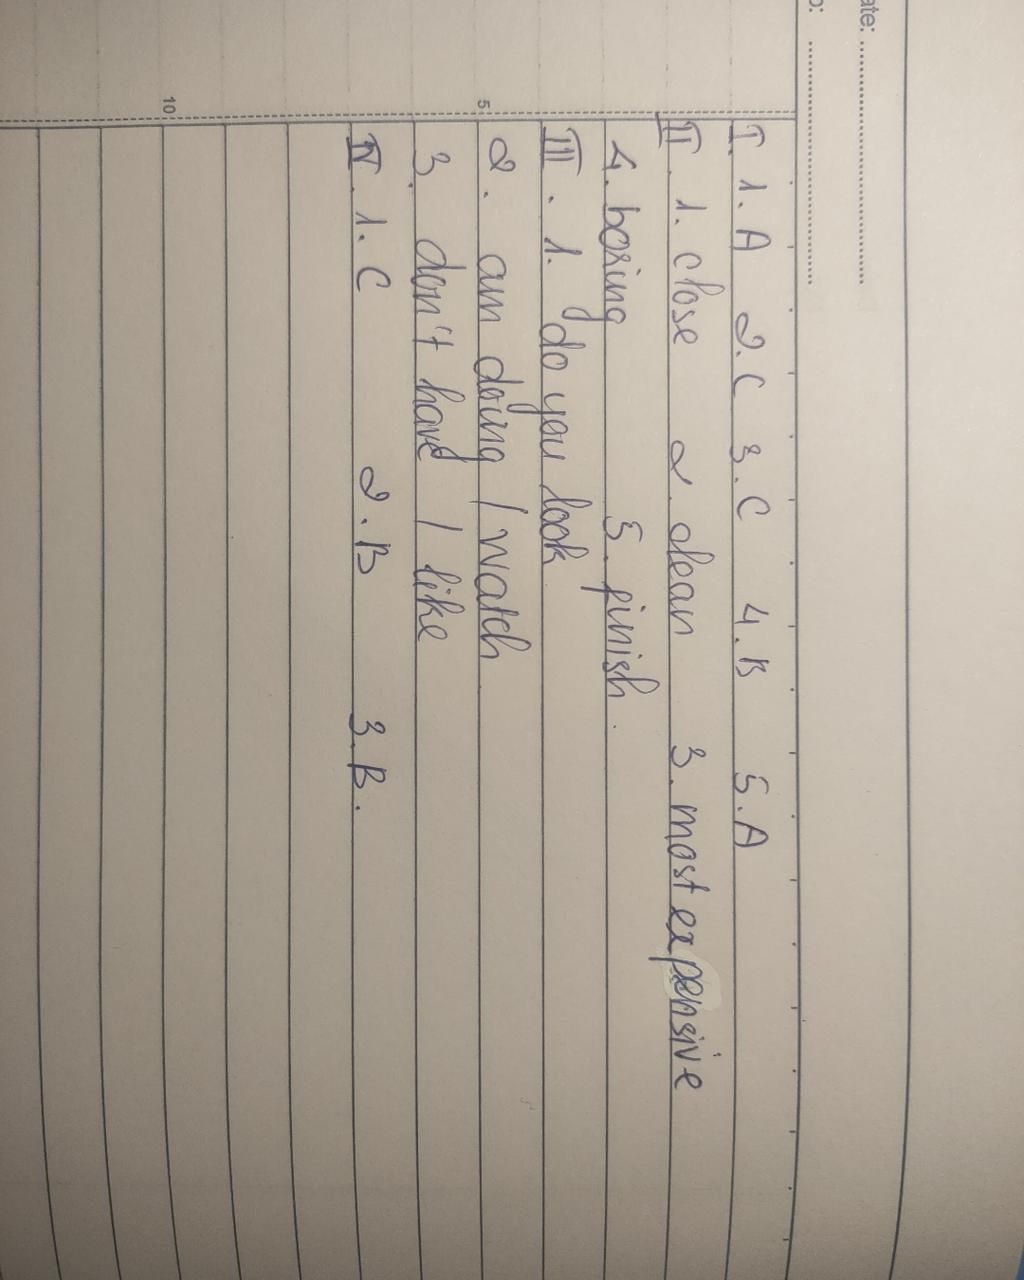 ate: ....................
o: ....................
I. 1. A 2. C 3. C 4. B 5. A
II. 1. close 2. clean 3. most expensive
4. boring 5. finish.
III. 1. do you look
5
2. am doing / watch
3. don't have / like
IV. 1. C 2. B 3. B.
10